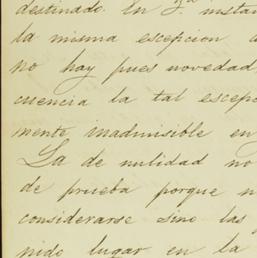 destinado. En 1ª instan
la misma escepcion
no hay pues novedad
cuencia la tal escepc
mente inadmisible en
La de nulidad no
de prueba porque n
considerarse sino las
nido lugar en la